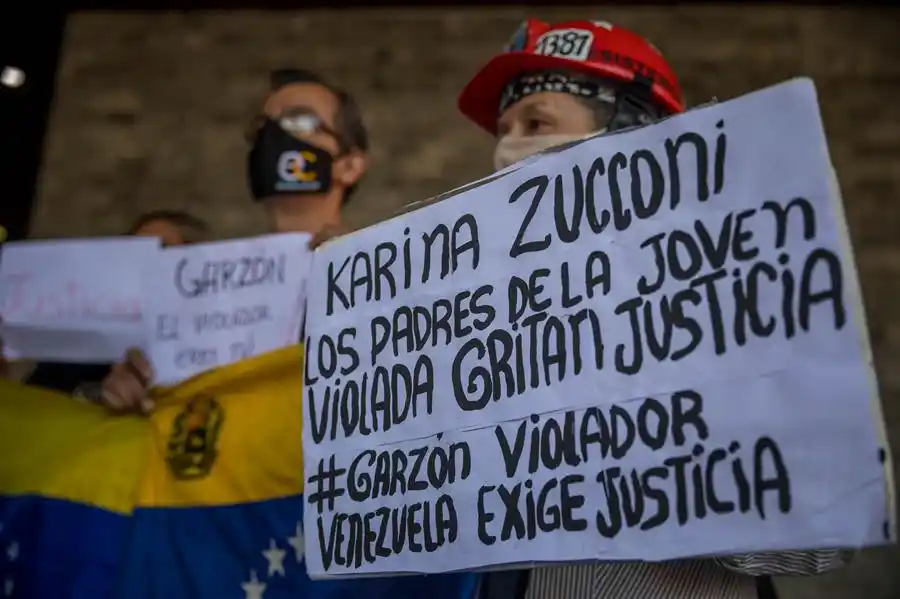 1387
SISTEM
EC
Justicia
GARZÓN
EL VIOLADOR
ERES TÚ
KARINA ZUCCONI
LOS PADRES DE LA JOVEN
VIOLADA GRITAN JUSTICIA
#GARZÓN VIOLADOR
VENEZUELA EXIGE JUSTICIA